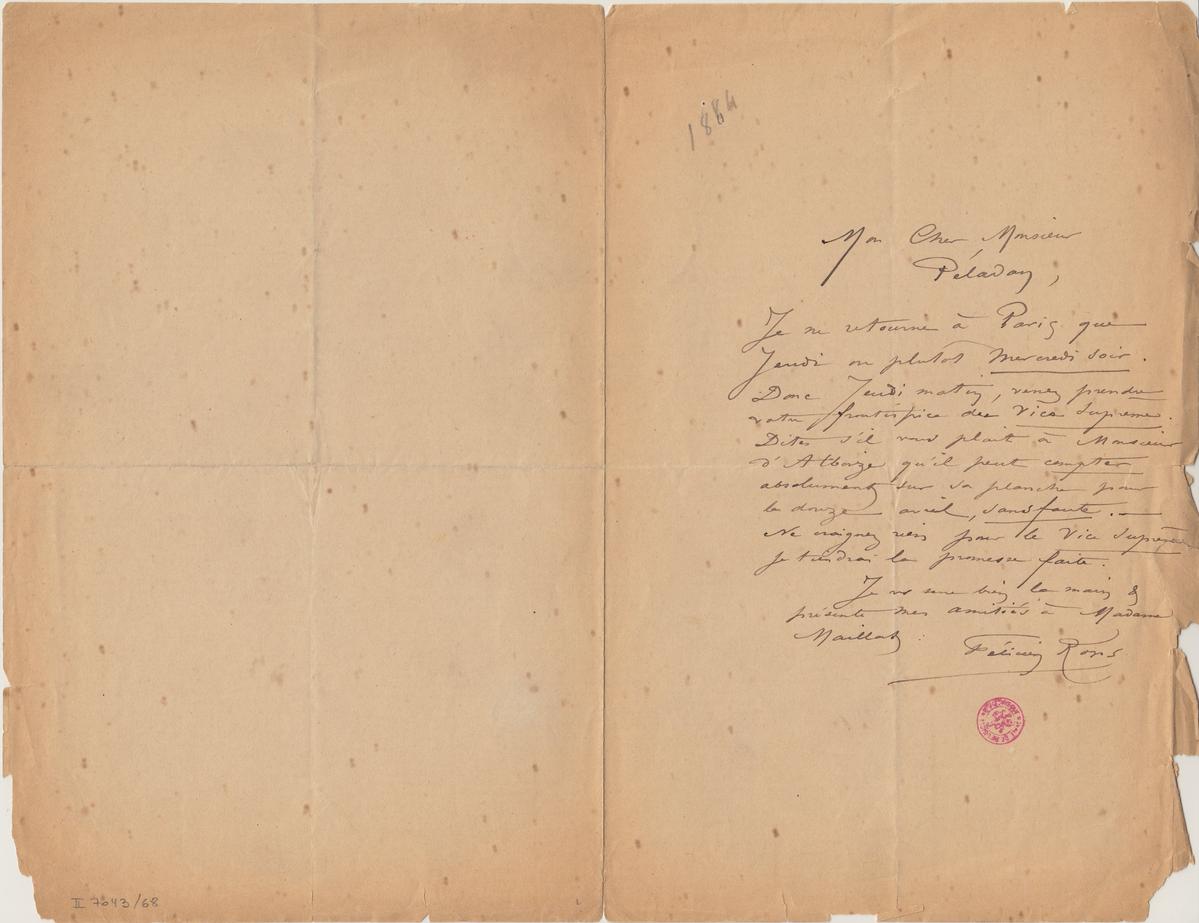 1884
Mon Cher Monsieur
Péladan,
Je ne retourne à Paris que
Jeudi ou plutôt Mercredi soir.
Donc Jeudi matin, venez prendre
votre frontispice du Vice Suprême.
Dites s'il vous plait à Monsieur
d'Alboize qu'il peut compter
absolument sur sa planche pour
le douze avril, sans faute. —
Ne craignez rien pour le Vice Suprême
je tiendrai la promesse faite.
Je vs serre bien la main &
présente mes amitiés à Madame
Maillat :
Félicien Rops
II 7043/68